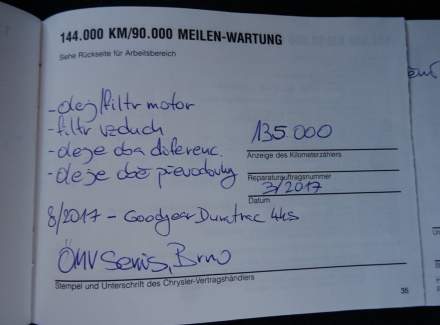 144.000 KM/90.000 MEILEN-WARTUNG
Siehe Rückseite für Arbeitsbereich
-olej/filtr motor
-filtr vzduch
135.000
-oleje oba diferenc.
Anzeige des Kilometerzählers
-oleje obě převodovky
Reparaturauftragsnummer
3/2017
Datum
8/2017 - Goodyear Duratrac 4ks
ÖMV Servis, Brno
Stempel und Unterschrift des Chrysler-Vertragshändlers
35